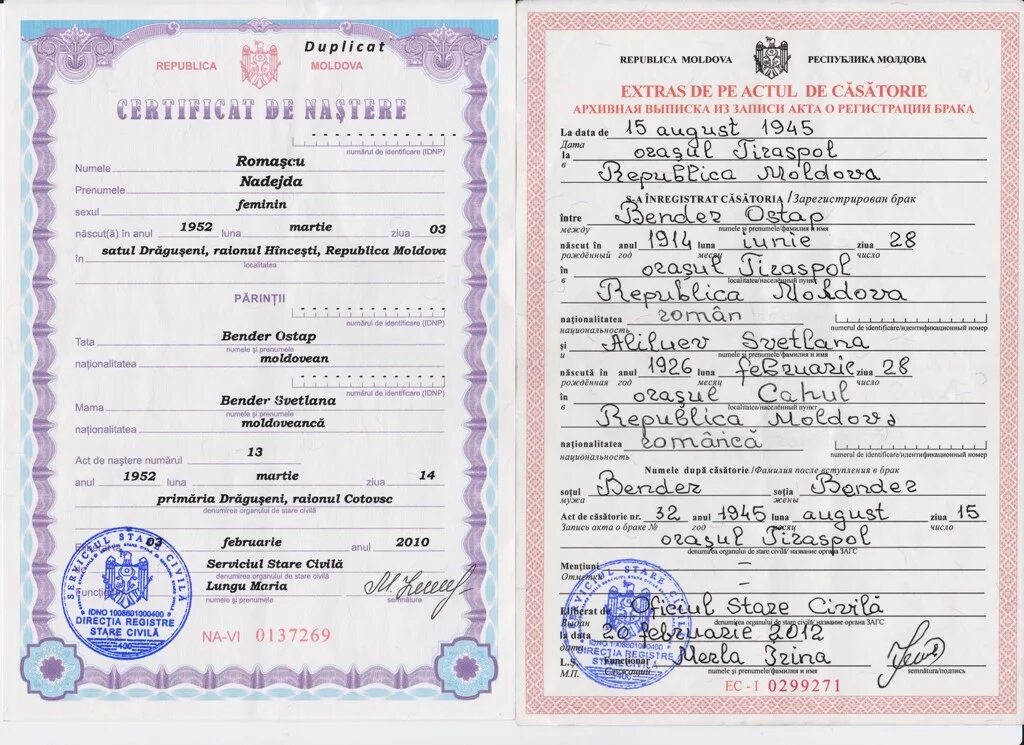 Duplicat
REPUBLICA MOLDOVA
CERTIFICAT DE NAȘTERE
numărul de identificare (IDNP)
Numele Romașcu
Prenumele Nadejda
sexul feminin
născut(ă) în anul 1952 luna martie ziua 03
în satul Drăgușeni, raionul Hîncești, Republica Moldova
localitatea
PĂRINȚII
numărul de identificare (IDNP)
Tata Bender Ostap
numele și prenumele
naționalitatea moldovean
numărul de identificare (IDNP)
Mama Bender Svetlana
numele și prenumele
naționalitatea moldoveancă
Act de naștere numărul 13
anul 1952 luna martie ziua 14
primăria Drăgușeni, raionul Cotovsc
denumirea organului de stare civilă
03 februarie anul 2010
Serviciul Stare Civilă
denumirea organului de stare civilă
Lungu Maria
numele și prenumele
semnătura
SERVICIUL STARE CIVILĂ
IDNO 1008601000400
DIRECȚIA REGISTRE
STARE CIVILĂ
400
NA-VI 0137269
REPUBLICA MOLDOVA РЕСПУБЛИКА МОЛДОВА
EXTRAS DE PE ACTUL DE CĂSĂTORIE
АРХИВНАЯ ВЫПИСКА ИЗ ЗАПИСИ АКТА О РЕГИСТРАЦИИ БРАКА
La data de 15 august 1945
Дата
la orașul Tiraspol
в Republica Moldova
S-A ÎNREGISTRAT CĂSĂTORIA /Зарегистрирован брак
între Bender Ostap
между numele și prenumele/фамилия и имя
născut în anul 1914 luna iunie ziua 28
рождённый год месяц число
în orașul Tiraspol
в localitatea/населённый пункт
Republica Moldova
naționalitatea român
национальность numerul de identificare/идентификационный номер
și Aliluev Svetlana
и numele și prenumele/фамилия и имя
născută în anul 1926 luna februarie ziua 28
рождённая год месяц число
în orașul Cahul
в localitatea/населённый пункт
Republica Moldova
naționalitatea româncă
национальность numerul de identificare/идентификационный номер
Numele după căsătorie/Фамилия после вступления в брак
soțul Bender soția Bender
мужа жены
Act de căsătorie nr. 32 anul 1945 luna august ziua 15
Запись акта о браке № год месяц число
orașul Tiraspol
denumirea organului de stare civilă/ название органа ЗАГС
Mențiuni –
Отметки –
Eliberat de Oficiul Stare Civilă
Выдан denumirea organului de stare civilă/ название органа ЗАГС
la data 20 februarie 2012
дата
L.Ș. Funcționar Merla Irina
М.П. Служащий numele și prenumele/фамилия и имя semnătura/подпись
SERVICIUL STARE CIVILĂ
DIRECȚIA REGISTRE
STARE CIVILĂ
400
EC-I 0299271